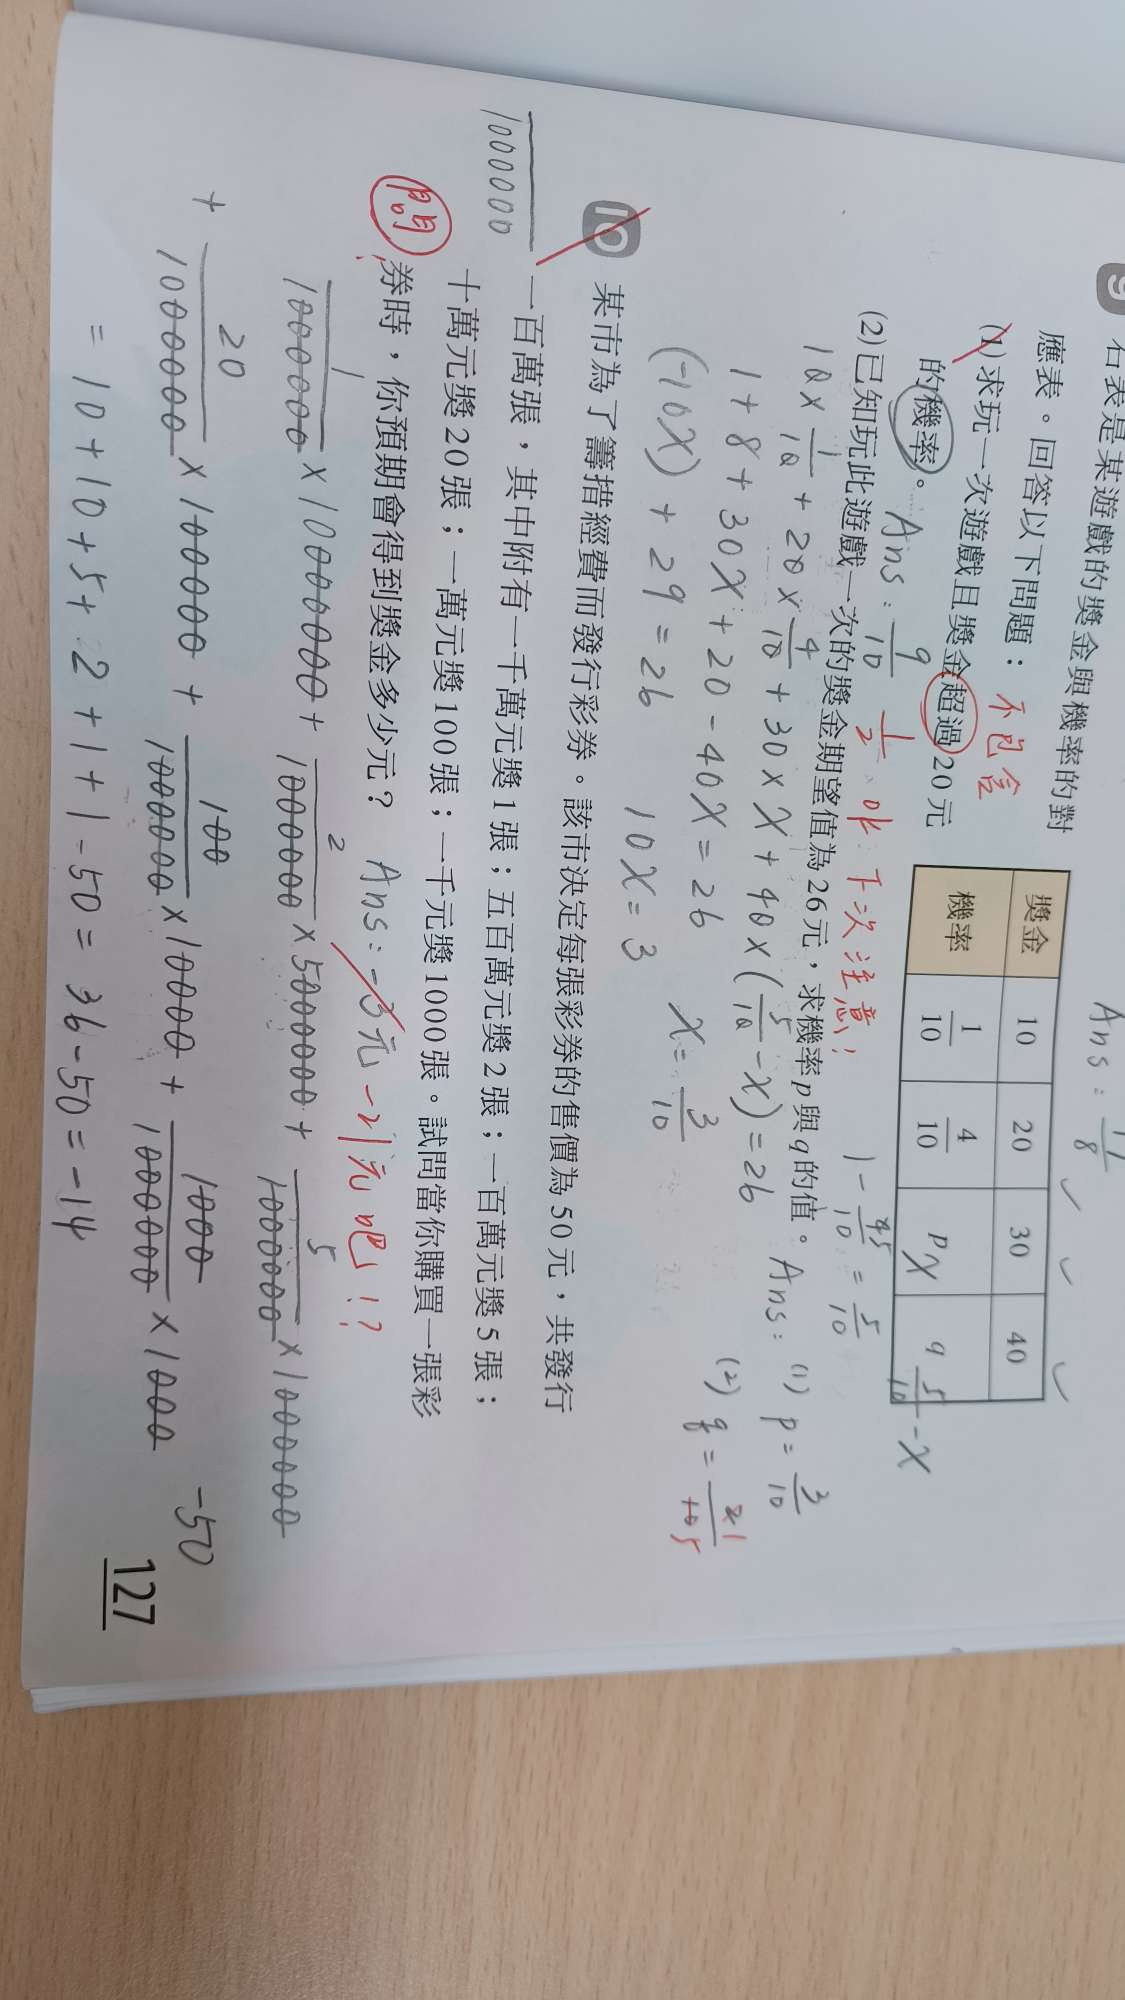 9 右表是某遊戲的獎金與機率的對
應表。回答以下問題：
(1)求玩一次遊戲且獎金超過20元
的機率。
不包含
Ans: 9/10 1/2
Ans: 11/8
獎金 10 20 30 40
機率 1/10 4/10 p x q 5/10 - x
(2)已知玩此遊戲一次的獎金期望值為26元，求機率p與q的值。
下次注意！
1 - 5/10 = 5/10
10 × 1/10 + 20 × 4/10 + 30 × x + 40 × (5/10 - x) = 26
1 + 8 + 30x + 20 - 40x = 26
(-10x) + 29 = 26
10x = 3
x = 3/10
Ans: (1) p = 3/10
(2) q = 1/5
10 某市為了籌措經費而發行彩券。該市決定每張彩券的售價為50元，共發行
一百萬張，其中附有一千萬元獎1張；五百萬元獎2張；一百萬元獎5張；
十萬元獎20張；一萬元獎100張；一千元獎1000張。試問當你購買一張彩
券時，你預期會得到獎金多少元？
1000000
問
Ans: -3元 -21元吧！？
1/1000000 × 10000000 + 2/1000000 × 5000000 + 5/1000000 × 1000000
+ 20/1000000 × 100000 + 100/1000000 × 10000 + 1000/1000000 × 1000 -50
= 10 + 10 + 5 + 2 + 1 + 1 - 50 = 36 - 50 = -14
127